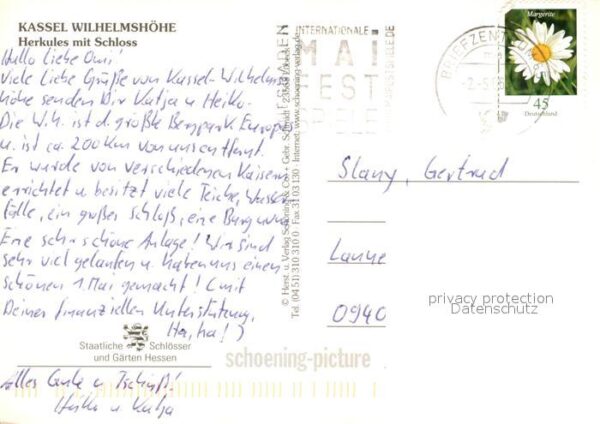 KASSEL WILHELMSHÖHE
Herkules mit Schloss
Hallo liebe Omi!
Viele liebe Grüße von Kassel-Wilhelms-
höhe senden Dir Katja u. Heiko.
Die W.h. ist d. größte Bergpark Europas
u. ist ca. 200 km von uns entfernt.
Er wurde von verschiedenen Kaisern
errichtet u. besitzt viele Teiche, Wasser-
fälle, ein großes Schloß, eine Burg usw.
Eine sehr schöne Anlage! Wir sind
sehr viel gelaufen u. haben uns einen
schönen 1. Mai gemacht! (mit
Deiner finanziellen Unterstützung,
Ha, ha! )
Staatliche Schlösser
und Gärten Hessen
Alles Gute u. Tschüß!
Heiko u. Katja
© Herst. u. Verlag Schöning & Co · Gebr. Schmidt · 23558 Lübeck
Tel. (04 51) 310 31 0 · Fax 31 03 130 · Internet: www.schoening-verlag.de
INTERNATIONALE
MAI
FEST
SPIELE
BRIEFZENTRUM
Margerite
45
Deutschland
Slany, Gertrud
0940
privacy protection
Datenschutz
schoening-picture